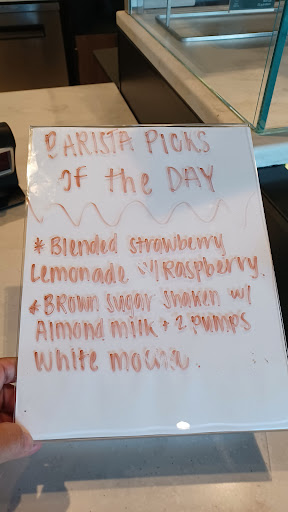 BARISTA PICKS
OF the DAY
* Blended strawberry
Lemonade w/ Raspberry
* Brown sugar shaken w/
Almond milk + 2 pumps
white mocha